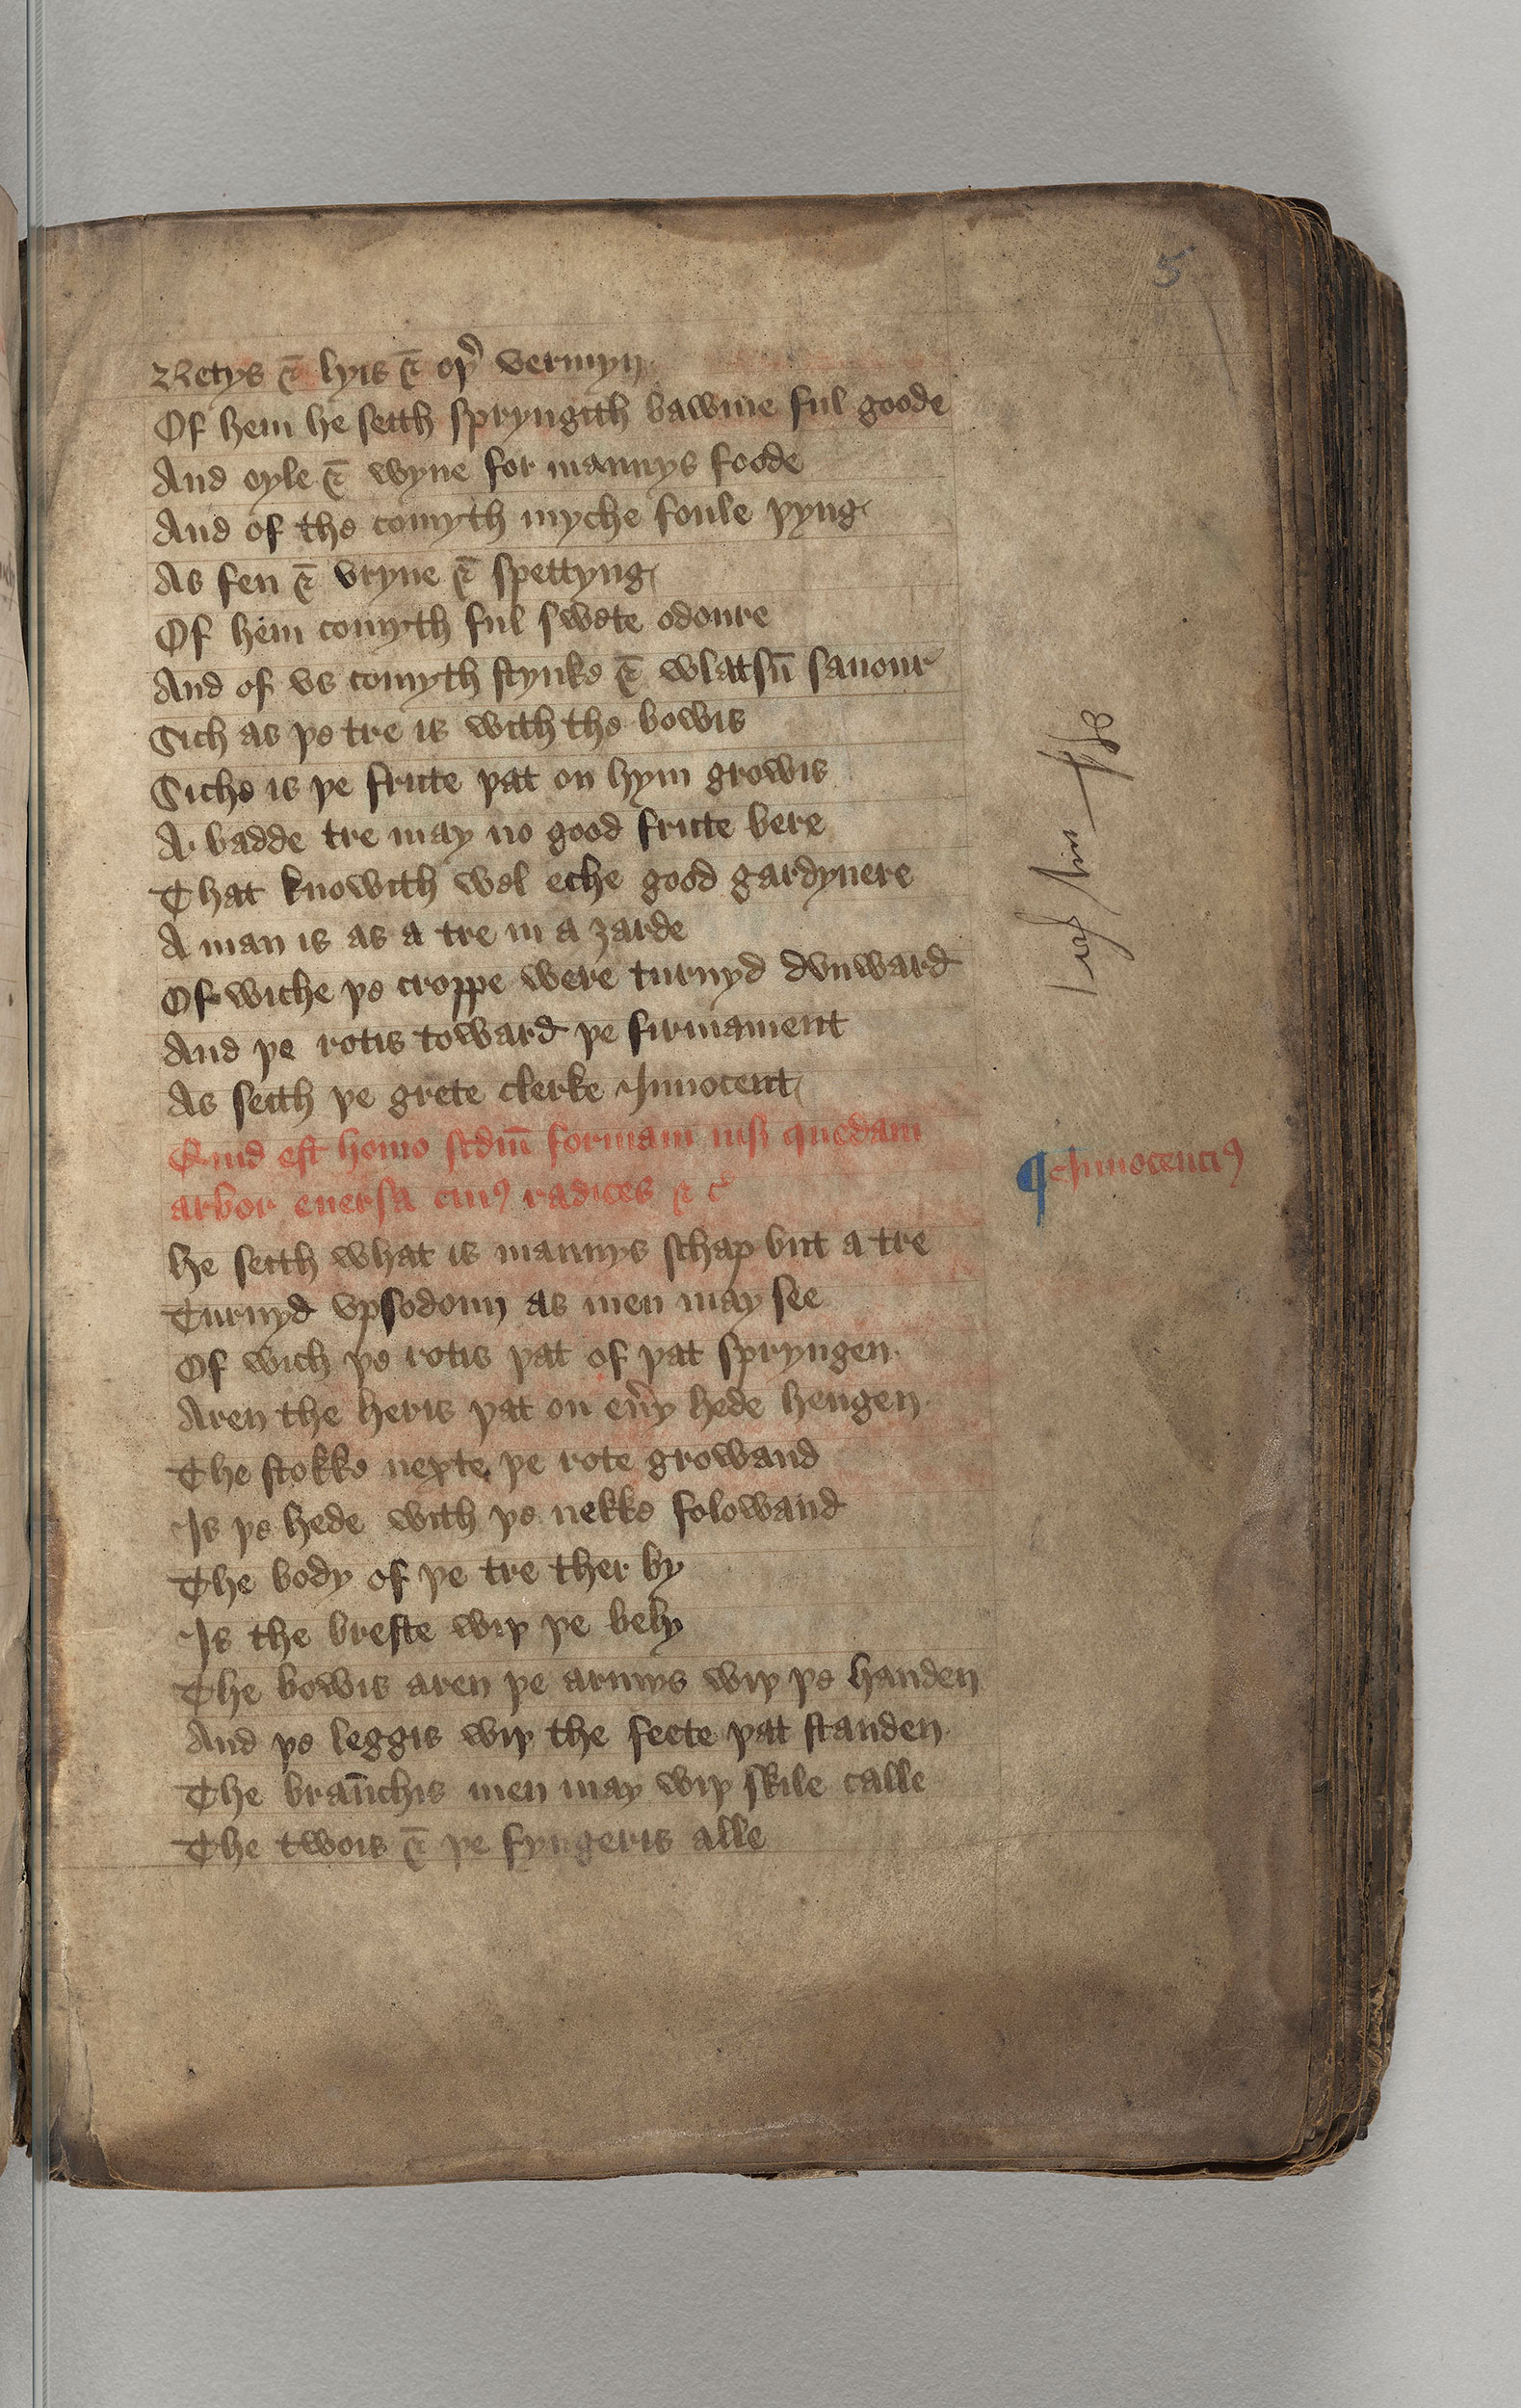 5
Netys ⁊ lyis ⁊ oþ̉ vermyn
Of hem he seith spryngith bawme ful goode
And oyle ⁊ wyne for mannys foode
And of the comyth myche foule þyng
As fen ⁊ vryne ⁊ spettyng
Of hem comyth ful swete odoure
And of vs comyth stynke ⁊ wlatsū sauour
Sich as þe tre is with the bowis
Siche is þe frute þat on hym growis
A badde tre may no good frute bere
That knowith wel eche good gardynere
A man is as a tre in a ȝarde
Of wiche þe croppe were turnyd dvnward
And þe rotis toward þe firmament
As seith þe grete clerke Innocent
Quid est homo scdm̄ formam nisi quedam
arbor euersa cuiꝰ radices ⁊ c̉
¶ Innocenciꝰ
he seith what is mannys schap but a tre
Turnyd vpsodoun as men may see
Of wich þe rotis þat of þat spryngen
Aren the heris þat on eủy hede hengen
The stokke nexte þe rote growand
Is þe hede with þe nekke folowand
The body of þe tre ther by
Is the breste wiþ þe bely
The bowis aren þe armys wiþ þe handen
And þe leggis wiþ the feete þat standen
The brau̅chis men may wiþ skile calle
The twois ⁊ þe fyngeris alle